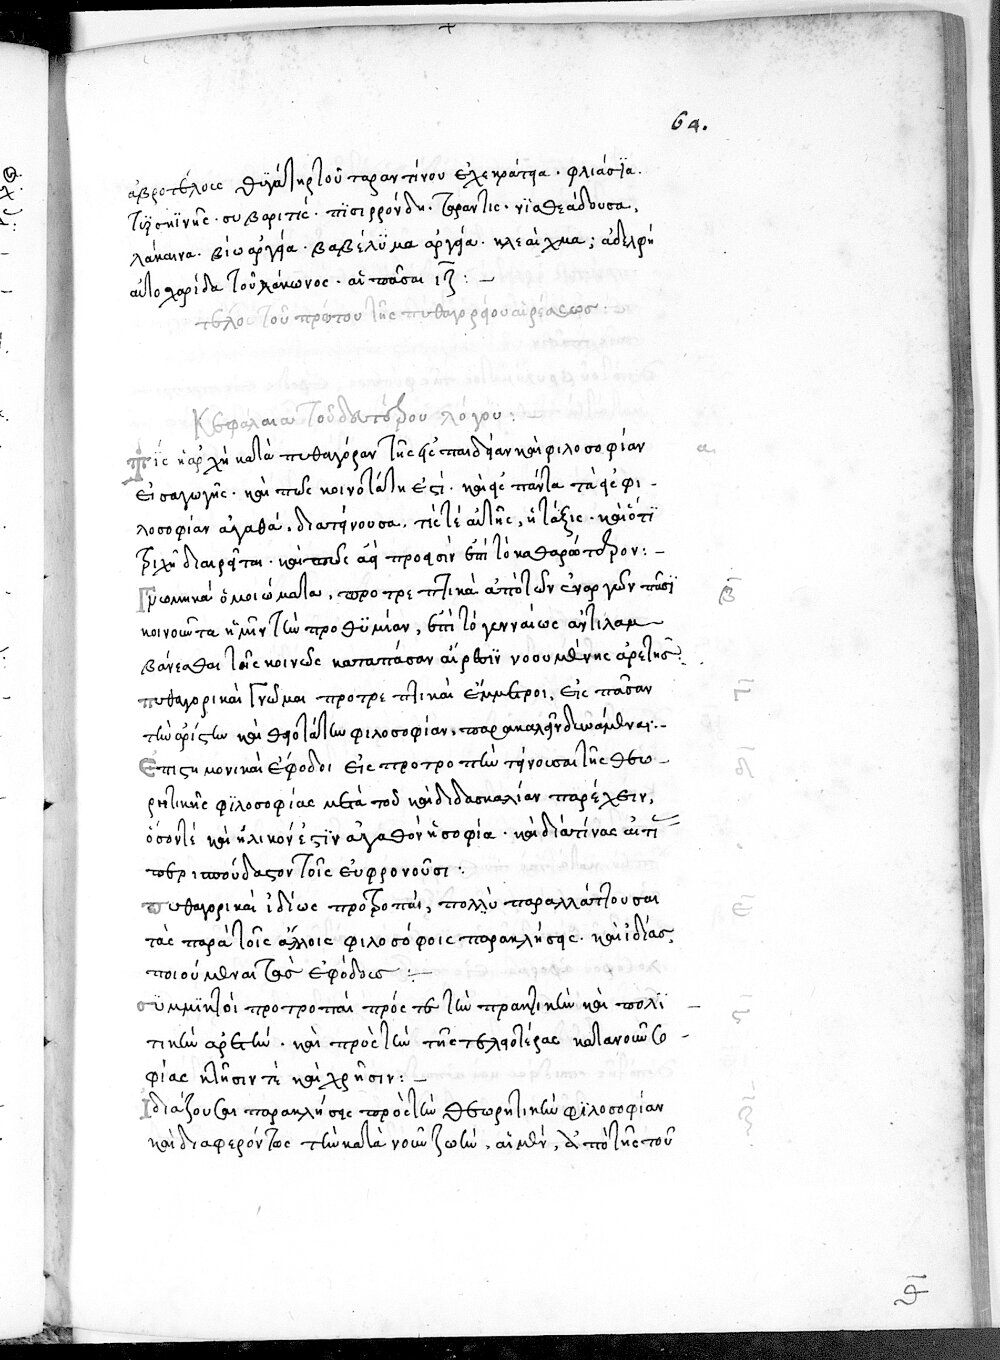 64.
ἁβροτέλους θυγάτηρ τοῦ ταραντίνου ἐχεκράτεια · φλιάσϊα ·
τυρσηνὶς · συβαρῖτις · πϊσιρρόνδη · ταραντὶς · νϊσθεάδουσα,
λάκαινα · βίω ἀργεία · βαβέλϋμα ἀργεία · κλεαίχμα ; ἀδελφὴ
αὐτοχαρίδα τοῦ λάκωνος · αἱ πᾶσαι ιζ : –
τέλος τοῦ πρώτου τῆς πυθαγορείου αἱρέσεως :
Κεφάλαια τοῦ δευτέρου λόγου : –
Τίς ἡ ἀρχὴ κατὰ πυθαγόραν τῆς εἰς παιδείαν καὶ φιλοσοφίαν
α
εἰσαγωγῆς · καὶ πῶς κοινοτάτη ἐστί · καὶ εἰς πάντα τὰ εἰς φι –
λοσοφίαν ἀγαθὰ, διατείνουσα, τίς τὲ αὐτῆς, ἡ τάξις · καὶ ὅτϊ
τριχῆ διαιρεῖται · καὶ πῶς ἀεὶ πρόεισιν ἐπὶ τὸ καθαρώτερον : –
Γνωμικὰ ὁμοιώματα, προτρεπτικὰ ἀπὸ τῶν ἐναργῶν πᾶσϊ
β
κοινοῦντα ἡμῖν τὴν προθϋμίαν, ἐπὶ τὸ γενναίως ἀντιλαμ –
βάνεσθαι τοῖς κοινῶς κατα πάσαν αἵρεσϊν νοουμένης ἀρετῆς :
πυθαγορικαὶ Γνῶμαι προτρεπτικαὶ ἔμμετροι, εἰς πᾶσαν
γ
τὴν ἀρίστην καὶ θειοτάτην φιλοσοφίαν, παρακαλεῖν δυνάμεναι : –
Ἐπιστημονικαὶ ἔφοδοι εἰς προτροπὴν τείνουσαι τῆς θεω –
δ
ρητικῆς φϊλοσοφίας μετὰ τοῦ καὶ διδασκαλίαν παρέχειν,
ὁσόντε καὶ ἡλικόν ἐστϊν ἀγαθὸν ἡ σοφία · καὶ διάτίνας αἰτϊ
περισπούδαστον τοῖς εὐφρονοῦσι :
πυθαγορικαὶ ἰδίως προτροπαὶ, πολλὺ παραλλάττουσαι
ε
τὰς παρὰ τοῖς ἄλλοις φιλοσόφοις παρακλήσεις · καὶ ἰδίας,
ποιούμεναι τὰς ἐφόδους : –
σϋμμϊκτοι προτροπαὶ πρός τε τὴν πρακτικὴν καὶ πολϊ –
ϛ
τικὴν ἀρετὴν · καὶ πρὸς τὴν τῆς τελειοτέρας κατανοῦν σο –
φίας κτῆσιν τὲ καὶ χρῆσιν : –
Ἰδιάζουσαι παρακλήσεις πρὸς τὴν θεωρητικὴν φϊλοσοφίαν
ζ
καὶ διαφερόντως τὴν κατὰ νοῦν ζωὴν, αἱ μὲν, ἀπὸ τῆς τοῦ
θ